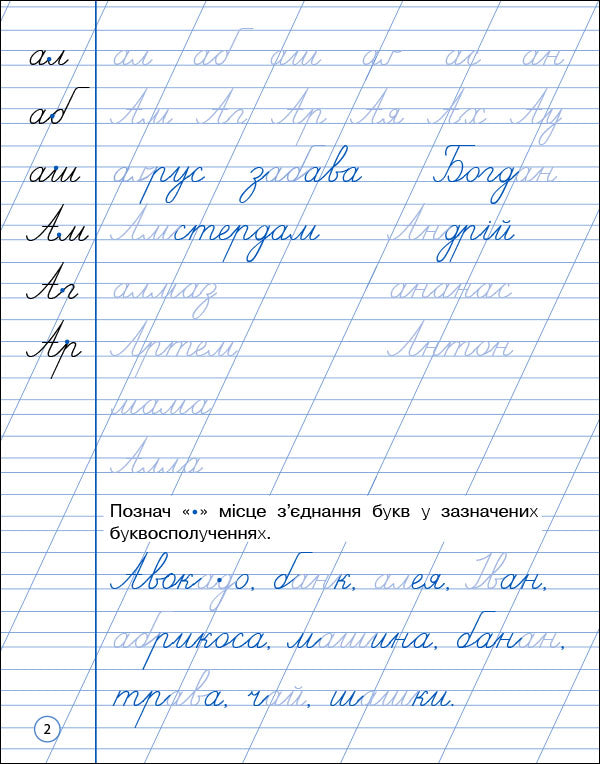 ал ал аб аш ас ан
аб Ам Аг Ар Ая Ах Ау
аш аґрус забава Богдан
Ам Амстердам Андрій
Аг алмаз ананас
Ар Артем Антон
мама
Алла
Познач «•» місце з’єднання букв у зазначених
буквосполученнях.
Авокадо, банк, алея, Іван,
абрикоса, машина, банан,
трава, чай, шашки.
2